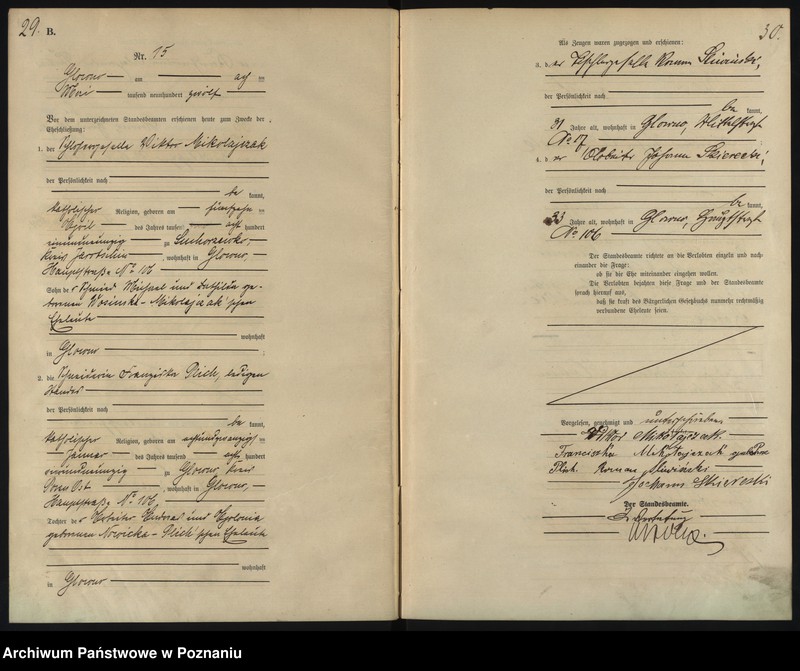 29.
B.
Nr. 15
Glowno am acht ten
Mai tausend neunhundert zwölf
Vor dem unterzeichneten Standesbeamten erschienen heute zum Zweck der
Eheschließung:
1. der Schlossergeselle Viktor Mikolajczak
der Persönlichkeit nach
be kannt,
katholischer Religion, geboren am fünfzehn ten
April des Jahres tausend acht hundert
neunundneunzig zu
Kreis Jarotschin, wohnhaft in Glowno,
Hauptstraße No 106
Sohn der Schmied Michael und ge-
borenen Wosinska-Mikolajczak'schen
Eheleute
wohnhaft
in Glowno
2. die Schneiderin Franziska Plich, ledigen
Standes
der Persönlichkeit nach
be kannt,
katholischer Religion, geboren am achtundzwanzigsten
Januar des Jahres tausend acht hundert
neunundneunzig zu Glowno, Kreis
Posen Ost, wohnhaft in Glowno,
Hauptstraße No 106
Tochter der Arbeiter Andreas und Apolonia
geborenen Nowicka-Plich'schen Eheleute
wohnhaft
in Glowno
30.
Als Zeugen waren zugezogen und erschienen:
3. der Tischlergeselle Roman
der Persönlichkeit nach
be kannt,
31 Jahre alt, wohnhaft in Glowno,
No 17
4. der Arbeiter Johann
der Persönlichkeit nach
be kannt,
33 Jahre alt, wohnhaft in Glowno, Hauptstraße
No 106
Der Standesbeamte richtete an die Verlobten einzeln und nach-
einander die Frage:
ob sie die Ehe miteinander eingehen wollen.
Die Verlobten bejahten diese Frage und der Standesbeamte
sprach hierauf aus,
daß sie kraft des Bürgerlichen Gesetzbuchs nunmehr rechtmäßig
verbundene Eheleute seien.
Vorgelesen, genehmigt und unterschrieben
Wiktor Mikołajczak
Franciszka Mikołajczak geborene
Plich. Roman
Johann
Der Standesbeamte.
In Vertretung
Archiwum Państwowe w Poznaniu